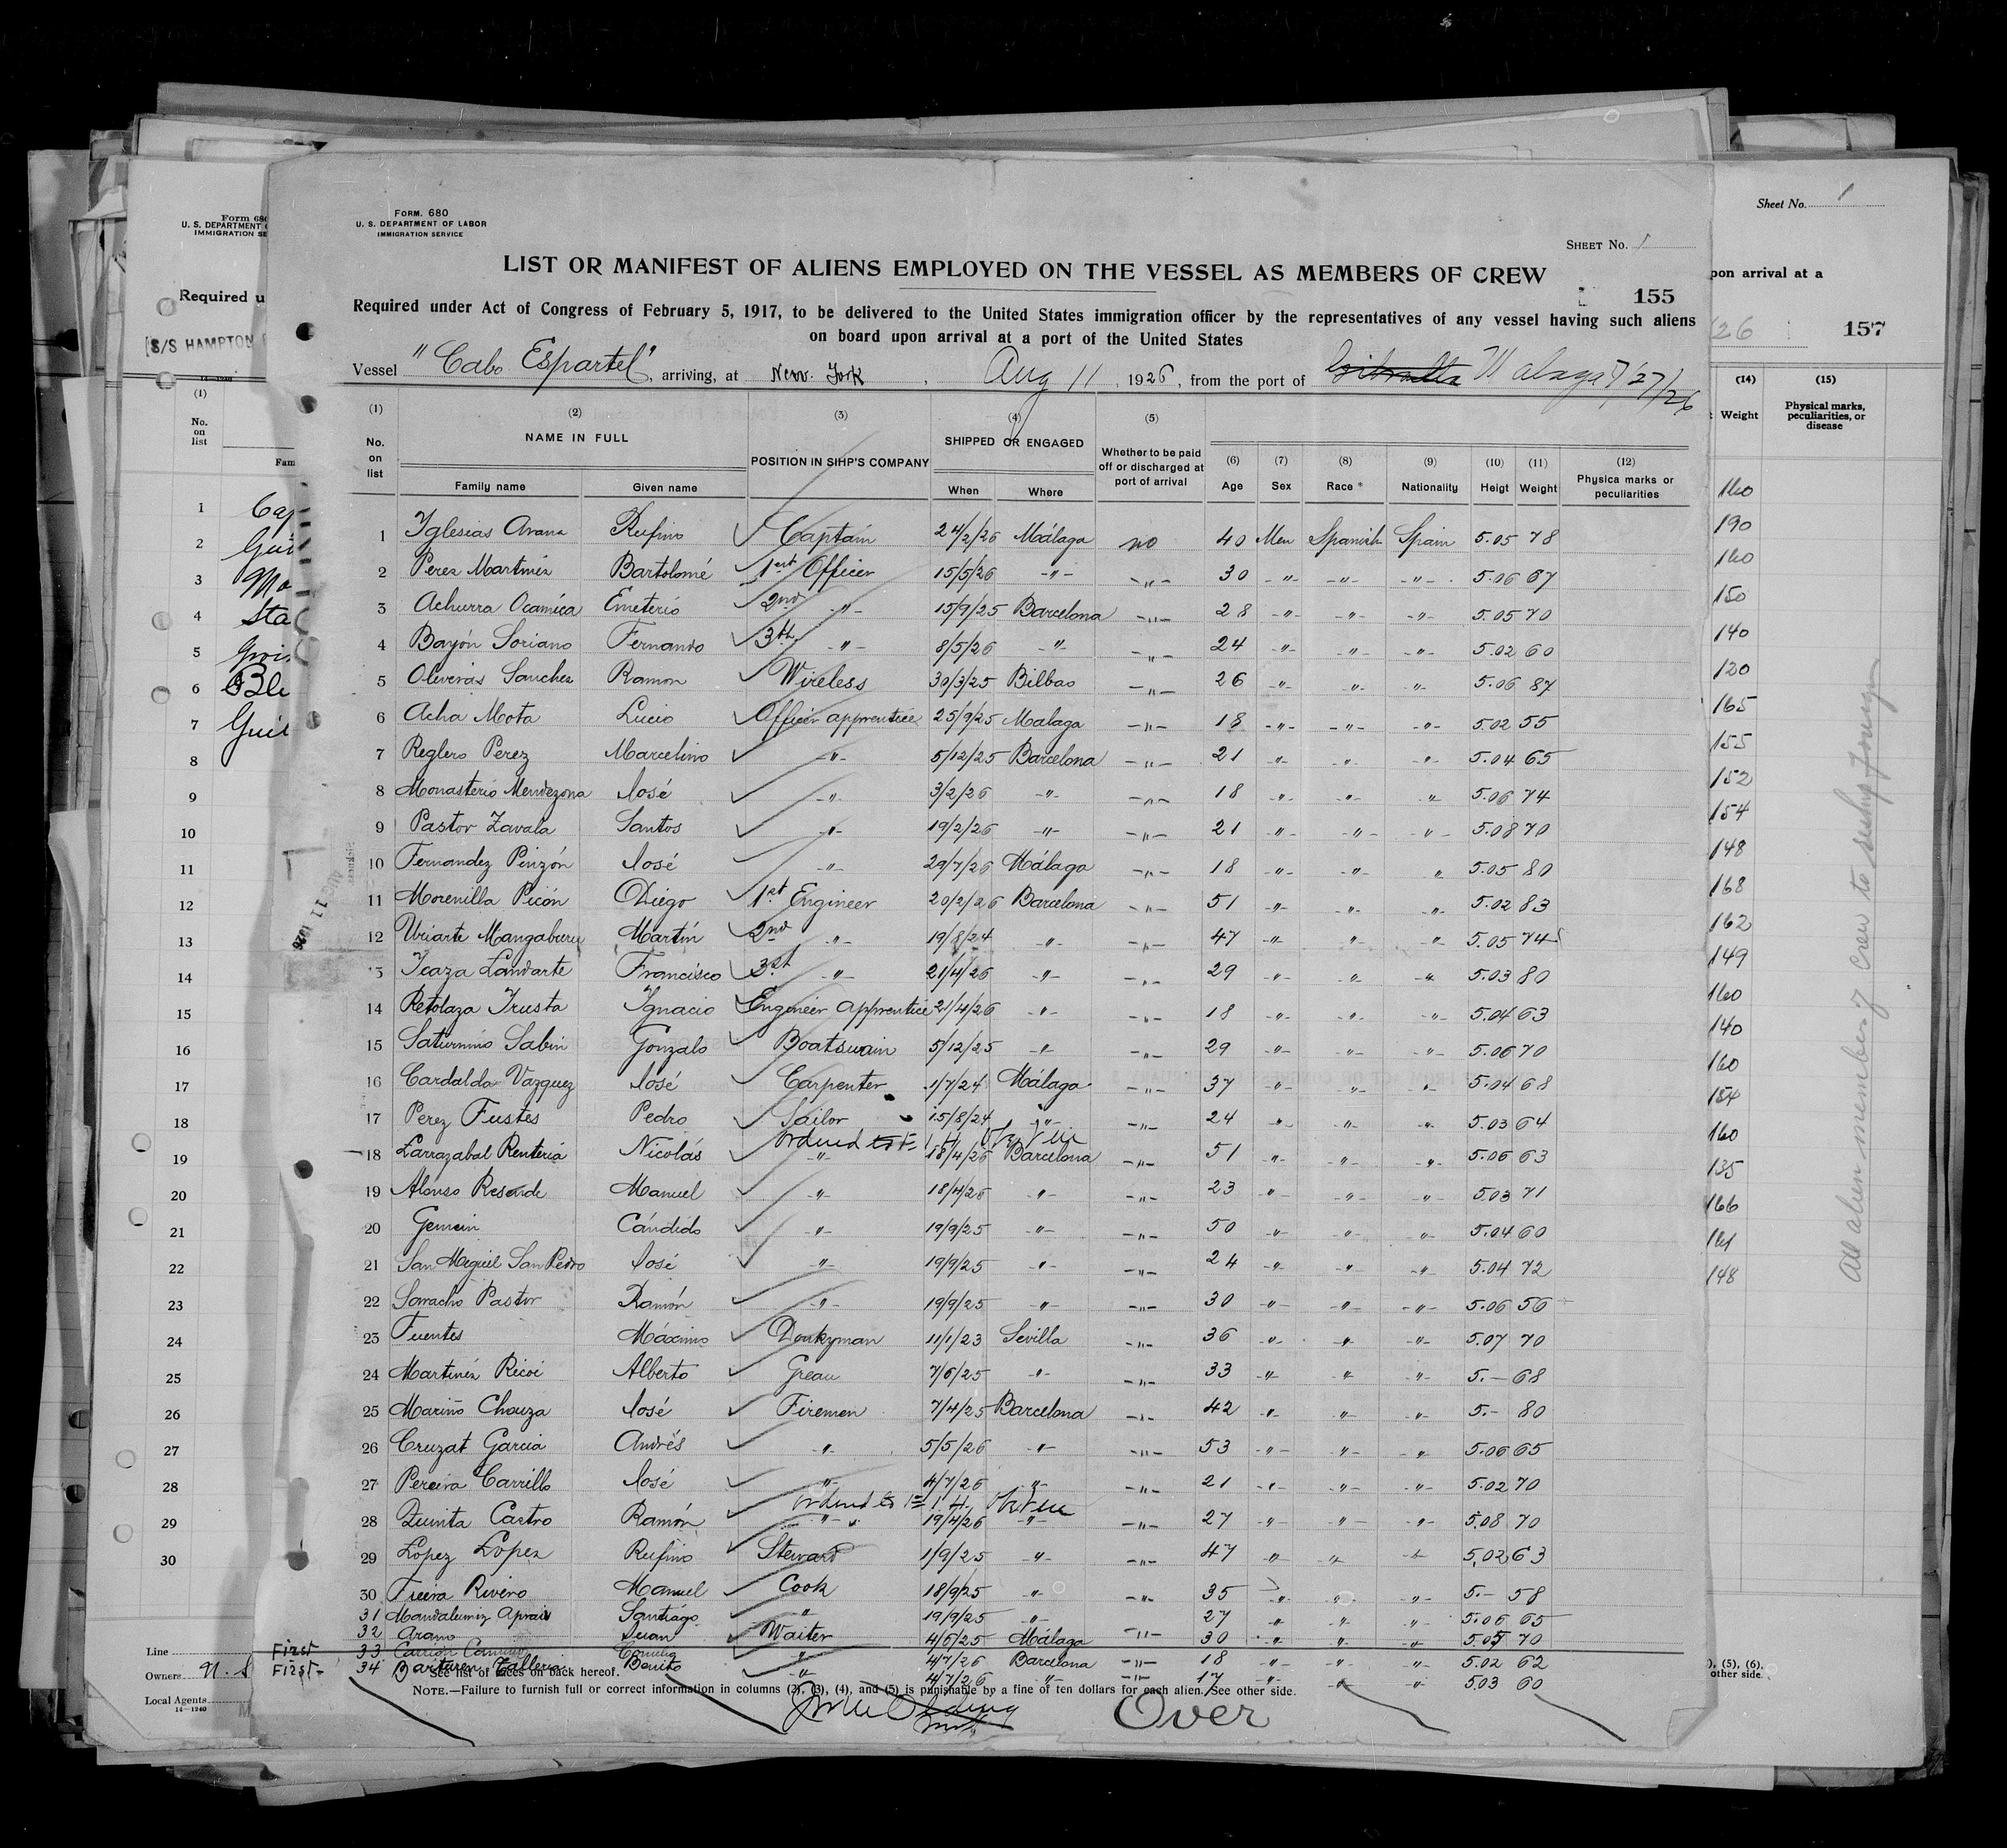 FORM. 680
U. S. DEPARTMENT OF LABOR
IMMIGRATION SERVICE
SHEET No. 1
LIST OR MANIFEST OF ALIENS EMPLOYED ON THE VESSEL AS MEMBERS OF CREW
155
Required under Act of Congress of February 5, 1917, to be delivered to the United States immigration officer by the representatives of any vessel having such aliens
on board upon arrival at a port of the United States
Vessel "Cabo Espartel", arriving, at New York, Aug 11, 1926, from the port of Gibraltar Malaga 7/27/26
(1) (2) (3) (4) (5) (6) (7) (8) (9) (10) (11) (12)
No. on list NAME IN FULL POSITION IN SIHP'S COMPANY SHIPPED OR ENGAGED Whether to be paid off or discharged at port of arrival Age Sex Race * Nationality Heigt Weight Physica marks or peculiarities
Family name Given name When Where
1 Iglesias Arana Rufino Captain 24/2/26 Málaga no 40 Men Spanish Spain 5.05 78
2 Perez Martinez Bartolomé 1st Officer 15/5/26 -"- -"- 30 -"- -"- -"- 5.06 67
3 Achurra Ocamica Emeterio 2nd -"- 15/9/25 Barcelona -"- 28 -"- -"- -"- 5.05 70
4 Bayón Soriano Fernando 3th -"- 8/5/26 -"- -"- 24 -"- -"- -"- 5.02 60
5 Oliveras Sanchez Ramon Wireless 30/3/25 Bilbao -"- 26 -"- -"- -"- 5.06 87
6 Acha Mota Lucio Officer apprentice 25/9/25 Malaga -"- 18 -"- -"- -"- 5.02 55
7 Reglero Perez Marcelino -"- 5/12/25 Barcelona -"- 21 -"- -"- -"- 5.04 65
8 Monasterio Mendezona José -"- 3/2/26 -"- -"- 18 -"- -"- -"- 5.06 74
9 Pastor Zavala Santos -"- 19/2/26 -"- -"- 21 -"- -"- -"- 5.08 70
10 Fernandez Pinzón José -"- 29/7/26 Málaga -"- 18 -"- -"- -"- 5.05 80
11 Morenilla Picón Diego 1st Engineer 20/2/26 Barcelona -"- 51 -"- -"- -"- 5.02 83
12 Uriarte Martín 2nd -"- 19/8/24 -"- -"- 47 -"- -"- -"- 5.05 74
13 Icaza Landarte Francisco 3st -"- 21/4/26 -"- -"- 29 -"- -"- -"- 5.03 80
14 Retolaza Trusta Ignacio Engineer apprentice 21/4/26 -"- -"- 18 -"- -"- -"- 5.04 63
15 Saturnino Sabin Gonzalo Boatswain 5/12/25 -"- -"- 29 -"- -"- -"- 5.06 70
16 Cardalda Vazquez José Carpenter 1/7/24 Málaga -"- 37 -"- -"- -"- 5.04 68
17 Perez Fustes Pedro Sailor 15/8/24 -"- -"- 24 -"- -"- -"- 5.03 64
18 Larrazabal Renteria Nicolás -"- 18/4/26 Barcelona -"- 51 -"- -"- -"- 5.06 63
19 Alonso Resende Manuel -"- 18/4/26 -"- -"- 23 -"- -"- -"- 5.03 71
20 Gemein Cándido -"- 19/9/25 -"- -"- 50 -"- -"- -"- 5.04 60
21 San Miguel San Pedro José -"- 19/9/25 -"- -"- 24 -"- -"- -"- 5.04 72
22 Sarracho Pastor Ramón -"- 19/9/25 -"- -"- 30 -"- -"- -"- 5.06 56
23 Fuentes Máximo Donkyman 11/1/23 Sevilla -"- 36 -"- -"- -"- 5.07 70
24 Martinez Ricoi Alberto Greau 7/6/25 -"- -"- 33 -"- -"- -"- 5.- 68
25 Mariño Chouza José Firemen 7/4/25 Barcelona -"- 42 -"- -"- -"- 5.- 80
26 Cruzat Garcia Andrés -"- 5/5/26 -"- -"- 53 -"- -"- -"- 5.06 65
27 Pereira Carrillo José -"- 4/7/26 -"- -"- 21 -"- -"- -"- 5.02 70
28 Quinta Castro Ramón -"- 19/4/26 -"- -"- 27 -"- -"- -"- 5.08 70
29 Lopez Lopez Rufino Steward 1/9/25 -"- -"- 47 -"- -"- -"- 5.02 63
30 Rivero Manuel Cook 18/9/25 -"- -"- 35 -"- -"- -"- 5.- 58
31 Santiago " 19/9/25 -"- 27 -"- -"- -"- 5.06 65
32 Arano Juan Waiter 4/5/25 Málaga -"- 30 -"- -"- -"- 5.05 70
First 33 Carrión " 4/7/26 Barcelona -"- 18 -"- -"- -"- 5.02 62
First 34 Barturen Talleria Benito -"- 4/7/26 -"- -"- 17 -"- -"- -"- 5.03 60
See list of races on back hereof.
NOTE.—Failure to furnish full or correct information in columns (2), (3), (4), and (5) is punishable by a fine of ten dollars for each alien. See other side.
Over
AUG 11 1926
Form 680
U. S. DEPARTMENT
IMMIGRATION SE
Required u
S/S HAMPTON
14—1240
(1)
No. on list
Fam
1 Cap
2 Gui
3 Mo
4 Sta
5
6 Ble
7 Guil
8
9
10
11
12
13
14
15
16
17
18
19
20
21
22
23
24
25
26
27
28
29
30
Line
Owners
Local Agents
14—1240
Sheet No. 1
pon arrival at a
26 157
(14) (15)
Weight Physical marks, peculiarities, or disease
160
190
160
150
140
120
165
155
152
154
148
168
162
149
160
140
160
154
160
135
166
161
148
All alien members of crew to reship foreign
), (5), (6).
other side.